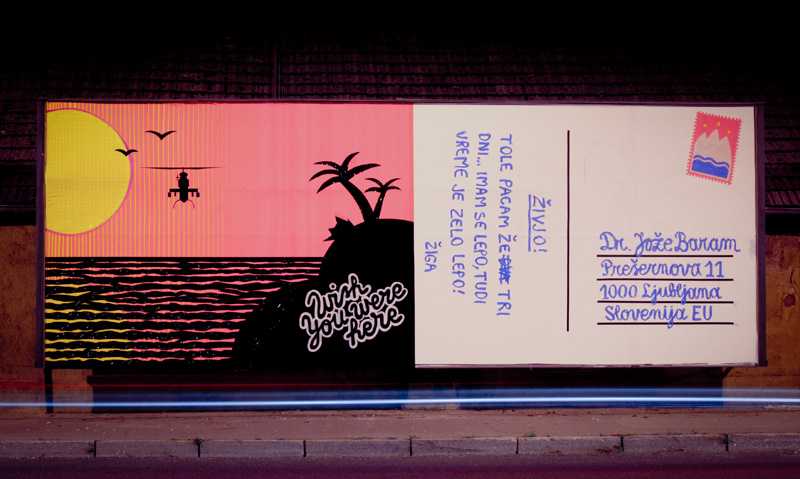 Wish
You Were
here
ŽIVJO!
TOLE PACAM ŽE TRI
DNI... IMAM SE LEPO, TUDI
VREME JE ZELO LEPO!
ŽIGA
Dr. Jože Baram
Prešernova 11
1000 Ljubljana
Slovenija EU